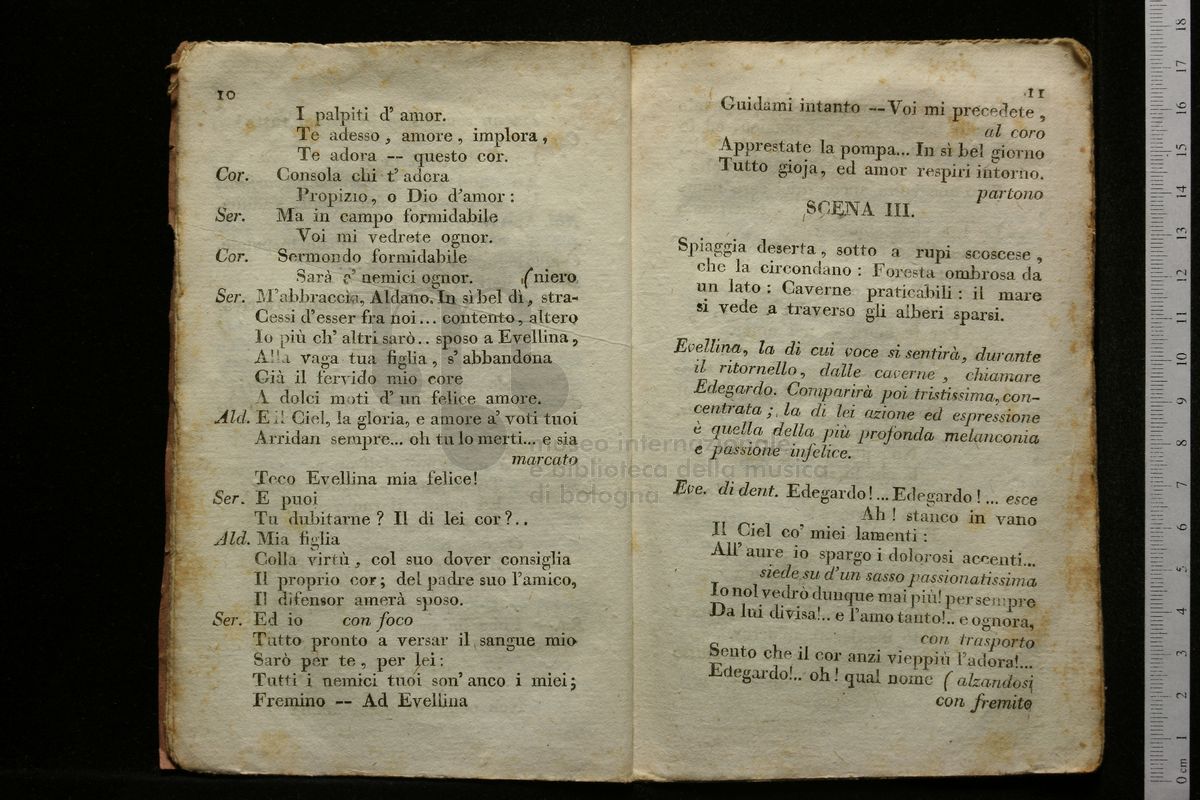 10
I palpiti d' amor.
Te adesso, amore, implora,
Te adora -- questo cor.
Cor. Consola chi t' adora
Propizio, o Dio d'amor:
Ser. Ma in campo formidabile
Voi mi vedrete ognor.
Cor. Sermondo formidabile
Sarà a' nemici ognor. (niero
Ser. M'abbraccia, Aldano. In sì bel dì, stra-
Cessi d'esser fra noi... contento, altero
Io più ch' altri sarò.. sposo a Evellina,
Alla vaga tua figlia, s' abbandona
Già il fervido mio core
A dolci moti d' un felice amore.
Ald. E il Ciel, la gloria, e amore a' voti tuoi
Arridan sempre... oh tu lo merti... e sia
marcato
Teco Evellina mia felice!
Ser. E puoi
Tu dubitarne? Il di lei cor?..
Ald. Mia figlia
Colla virtù, col suo dover consiglia
Il proprio cor; del padre suo l'amico,
Il difensor amerà sposo.
Ser. Ed io con foco
Tutto pronto a versar il sangue mio
Sarò per te, per lei:
Tutti i nemici tuoi son' anco i miei;
Fremino -- Ad Evellina
11
Guidami intanto -- Voi mi precedete,
al coro
Apprestate la pompa... In sì bel giorno
Tutto gioja, ed amor respiri intorno.
partono
SCENA III.
Spiaggia deserta, sotto a rupi scoscese,
che la circondano: Foresta ombrosa da
un lato: Caverne praticabili: il mare
si vede a traverso gli alberi sparsi.
Evellina, la di cui voce si sentirà, durante
il ritornello, dalle caverne, chiamare
Edegardo. Comparirà poi tristissima, con-
centrata; la di lei azione ed espressione
è quella della più profonda melanconia
e passione infelice.
Eve. di dent. Edegardo!... Edegardo!... esce
Ah! stanco in vano
Il Ciel co' miei lamenti:
All' aure io spargo i dolorosi accenti...
siede su d'un sasso passionatissima
Io nol vedrò dunque mai più! per sempre
Da lui divisa!.. e l'amo tanto!.. e ognora,
con trasporto
Sento che il cor anzi vieppiù l'adora!...
Edegardo!.. oh! qual nome (alzandosi
con fremito
museo internazionale
e biblioteca della musica
di bologna
0 cm 1 2 3 4 5 6 7 8 9 10 11 12 13 14 15 16 17 18